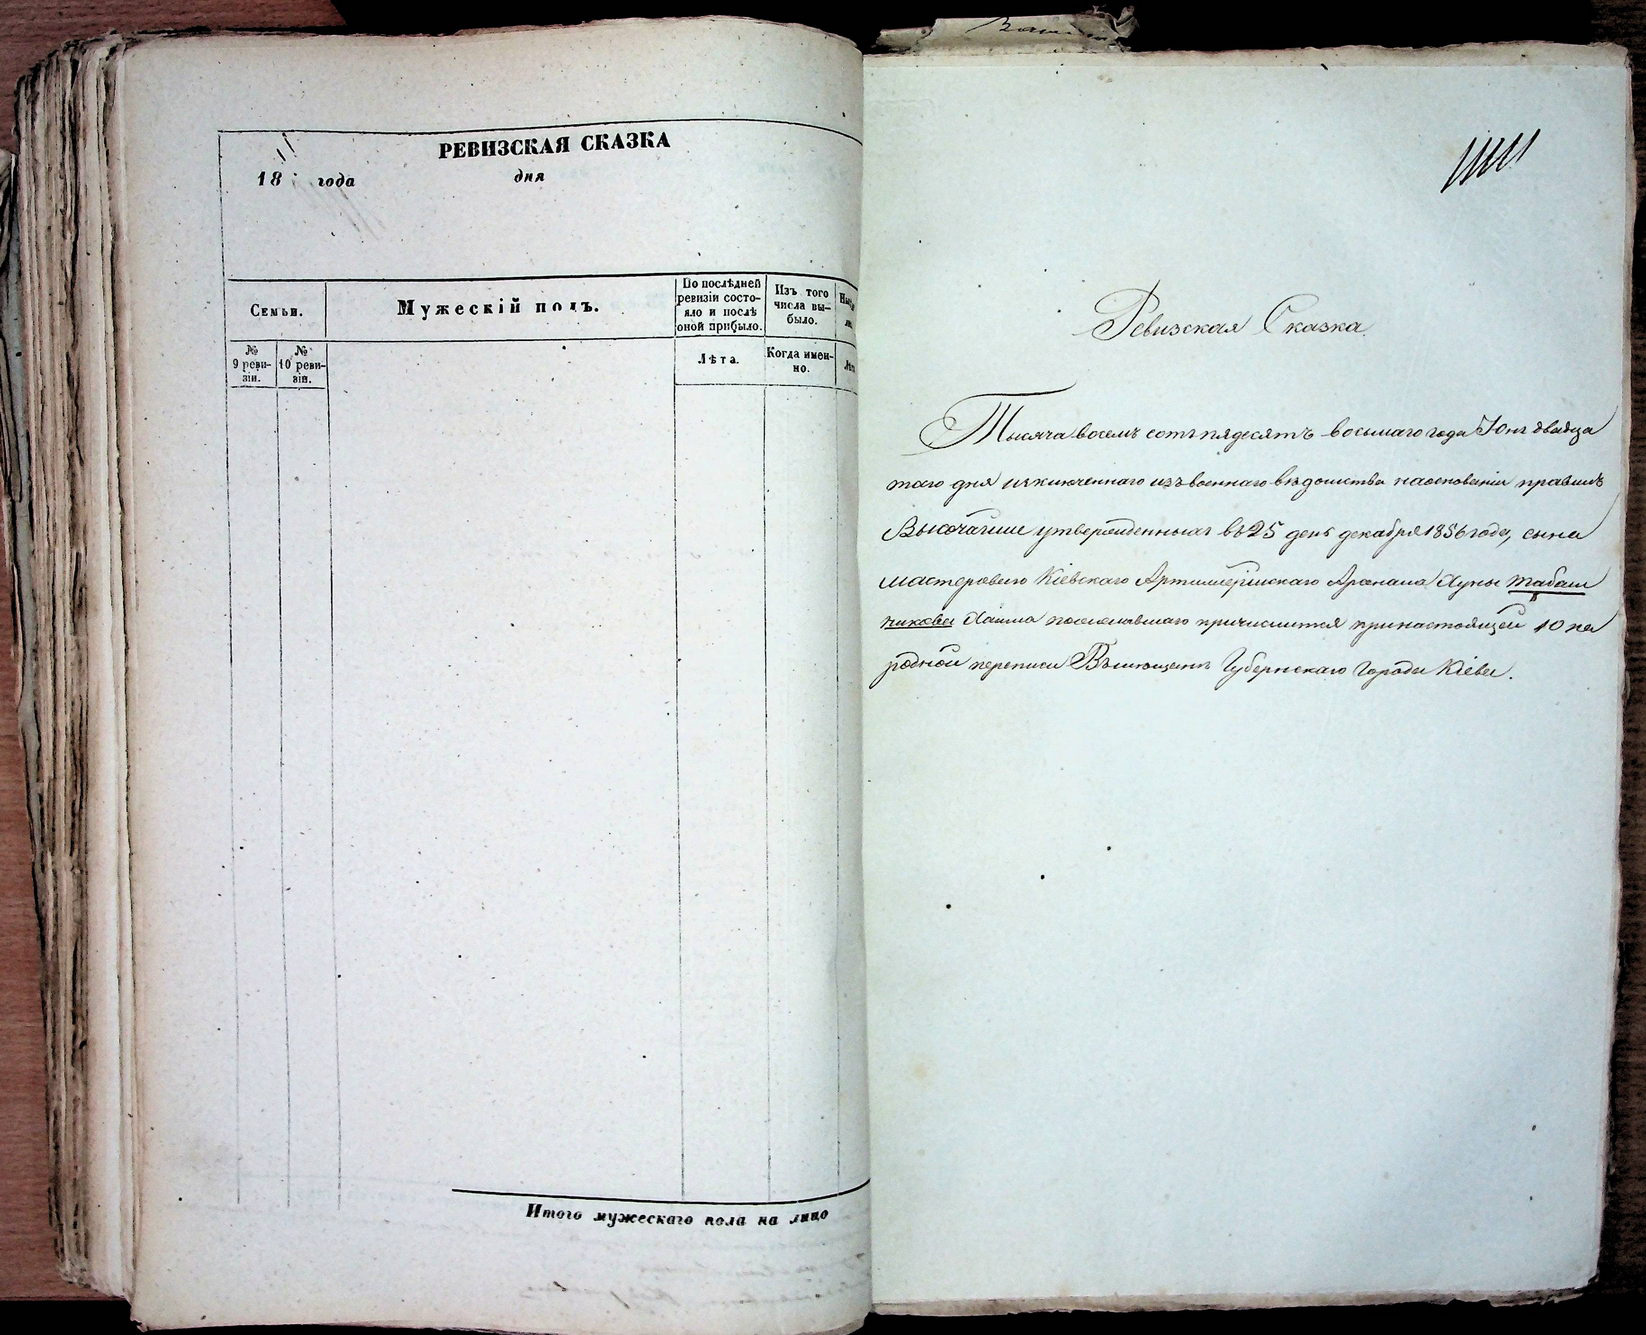 РЕВИЗСКАЯ СКАЗКА
18 года дня
Семьи.
Мужескій полъ.
По послѣдней
ревизіи состо-
яло и послѣ
оной прибыло.
Изъ того
числа вы-
было.
№
9 реви-
зіи.
№
10 реви-
зіи.
Лѣта.
Когда имен-
но.
Итого мужескаго пола на лицо
Ревизская Сказка
Тысяча восемъ сотъ пядесятъ восьмаго года Юня двадца
таго дня изключеннаго изъ военнаго вѣдомства наосновании правилъ
Высочайше утвержденныхъ въ 25 день декабря 1856 года, сына
мастероваго Кіевскаго Артиллерійскаго Арсенала Хуны Табаш
никова Хаима пожелавшаго причислится принастоящей 10 на
родной переписи Въ мещане Губернскаго Города Кіева.